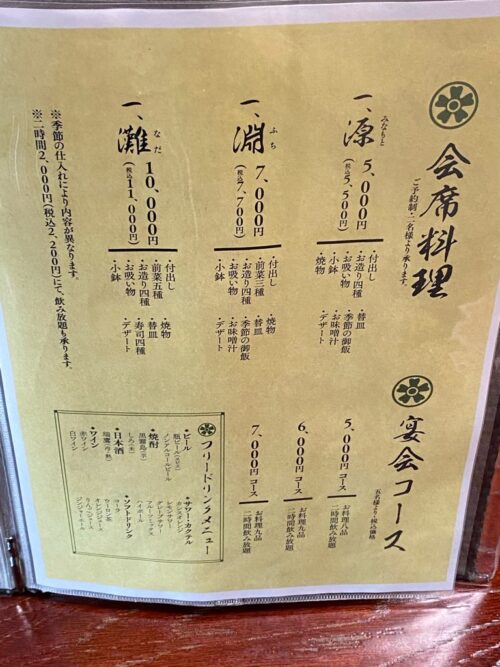 会席料理
ご予約制・二名様より承ります。
一、源
みなもと
5,000円
(税込5,500円)
・付出し
・お造り四種
・お吸い物
・小鉢
・焼物
・替皿
・季節の御飯
・お味噌汁
・デザート
一、淵
ふち
7,000円
(税込7,700円)
・付出し
・前菜三種
・お造り四種
・お吸い物
・小鉢
・焼物
・替皿
・季節の御飯
・お味噌汁
・デザート
一、灘
なだ
10,000円
(税込11,000円)
・付出し
・前菜五種
・お造り四種
・お吸い物
・小鉢
・焼物
・替皿
・寿司四種
・デザート
※季節の仕入れにより内容が異なります。
※二時間2,000円(税込2,200円)にて、飲み放題も承ります。
宴会コース
五名様より・税込価格
5,000円コース
お料理八品
二時間飲み放題
6,000円コース
お料理九品
二時間飲み放題
7,000円コース
お料理九品
二時間飲み放題
フリードリンクメニュー
・ビール
瓶ビール
ノンアルコールビール
・焼酎
黒霧島(芋)
しろ(米)
・日本酒
瑞鷹(冷・熱)
・ワイン
赤ワイン
白ワイン
・サワー・カクテル
カシスオレンジ
レモンサワー
グレープサワー
ハイボール
・ソフトドリンク
コーラ
ウーロン茶
オレンジジュース
りんごジュース
ジンジャーエール